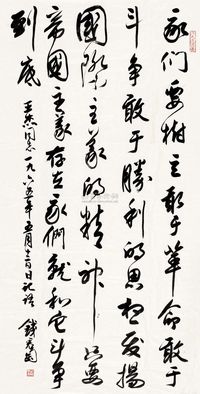 我们要树立敢于革命敢于
斗争敢于胜利的思想发扬
国际主义的精神只要
帝国主义存在我們就和它斗争
到底
王杰同志一九六五年五月廿一日记語